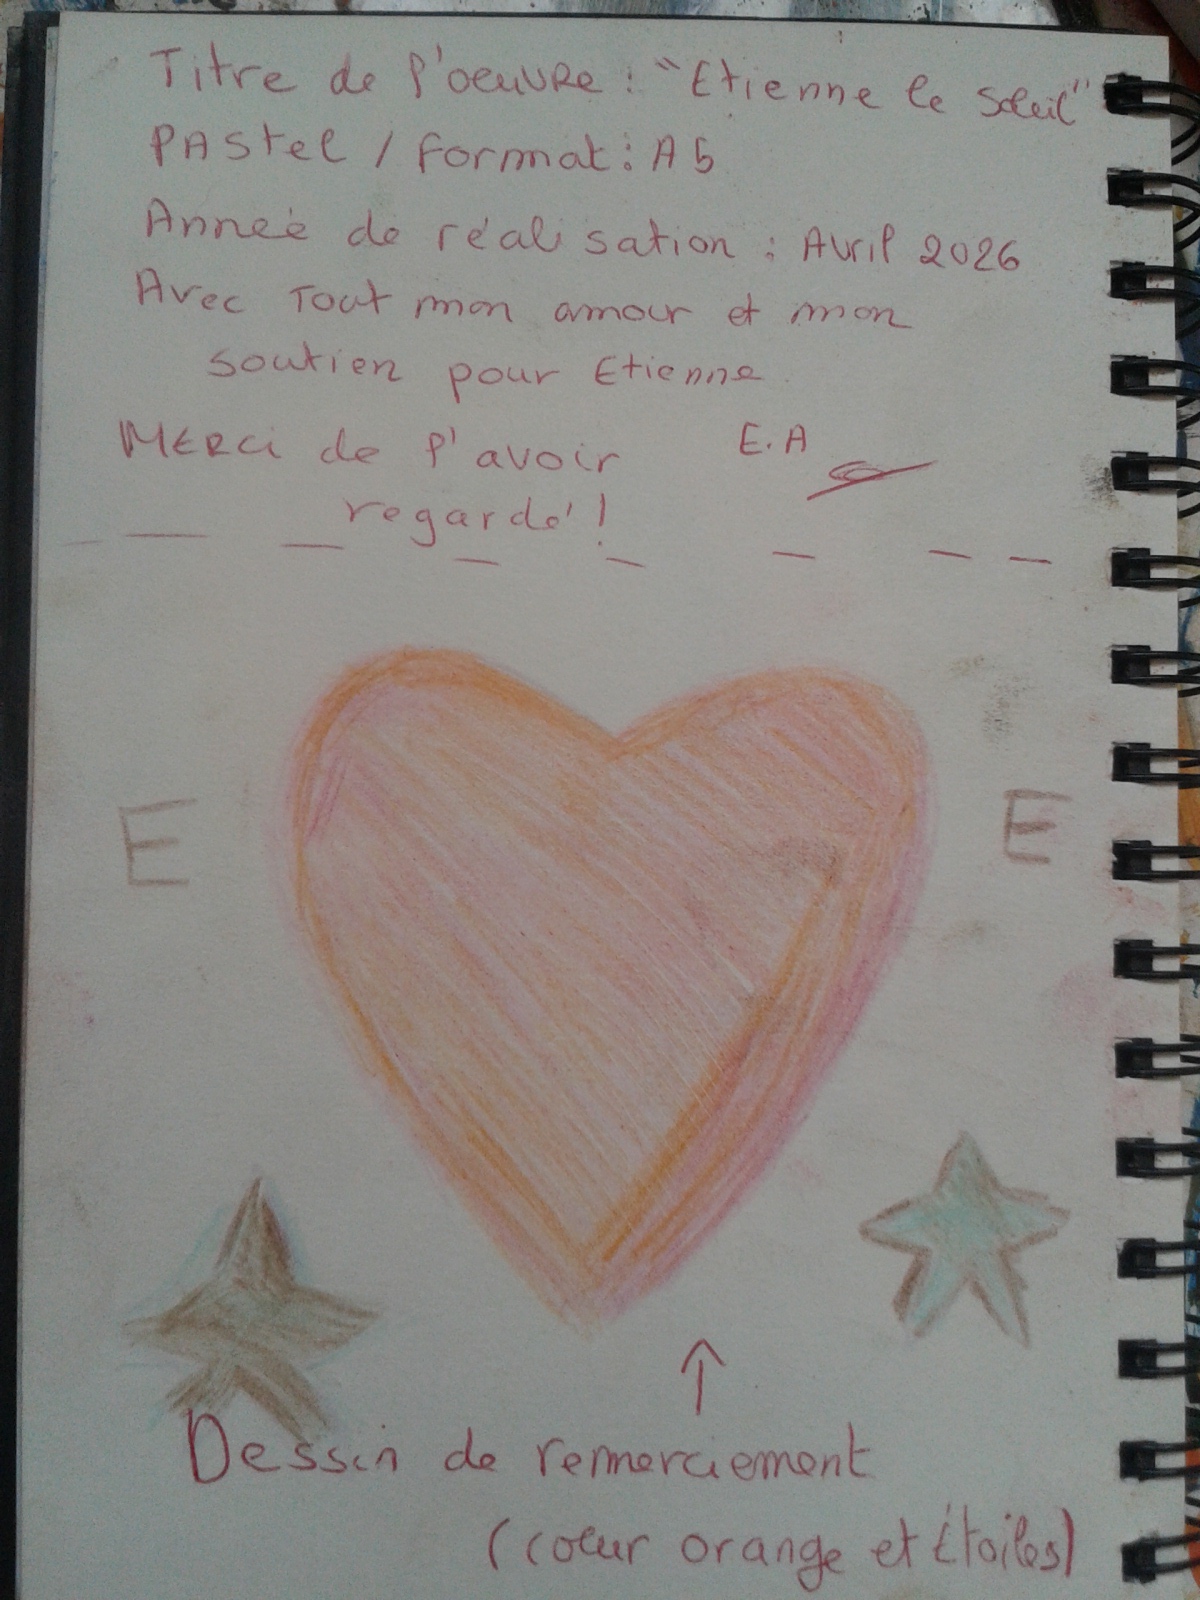 Titre de l'oeuvre : "Etienne le soleil"
PAStel / format : A5
Année de réalisation : Avril 2026
Avec Tout mon amour et mon
soutien pour Etienne.
MERCi de l'avoir
E.A
regardé !
E
E
Dessin de remerciement
(coeur orange et étoiles)